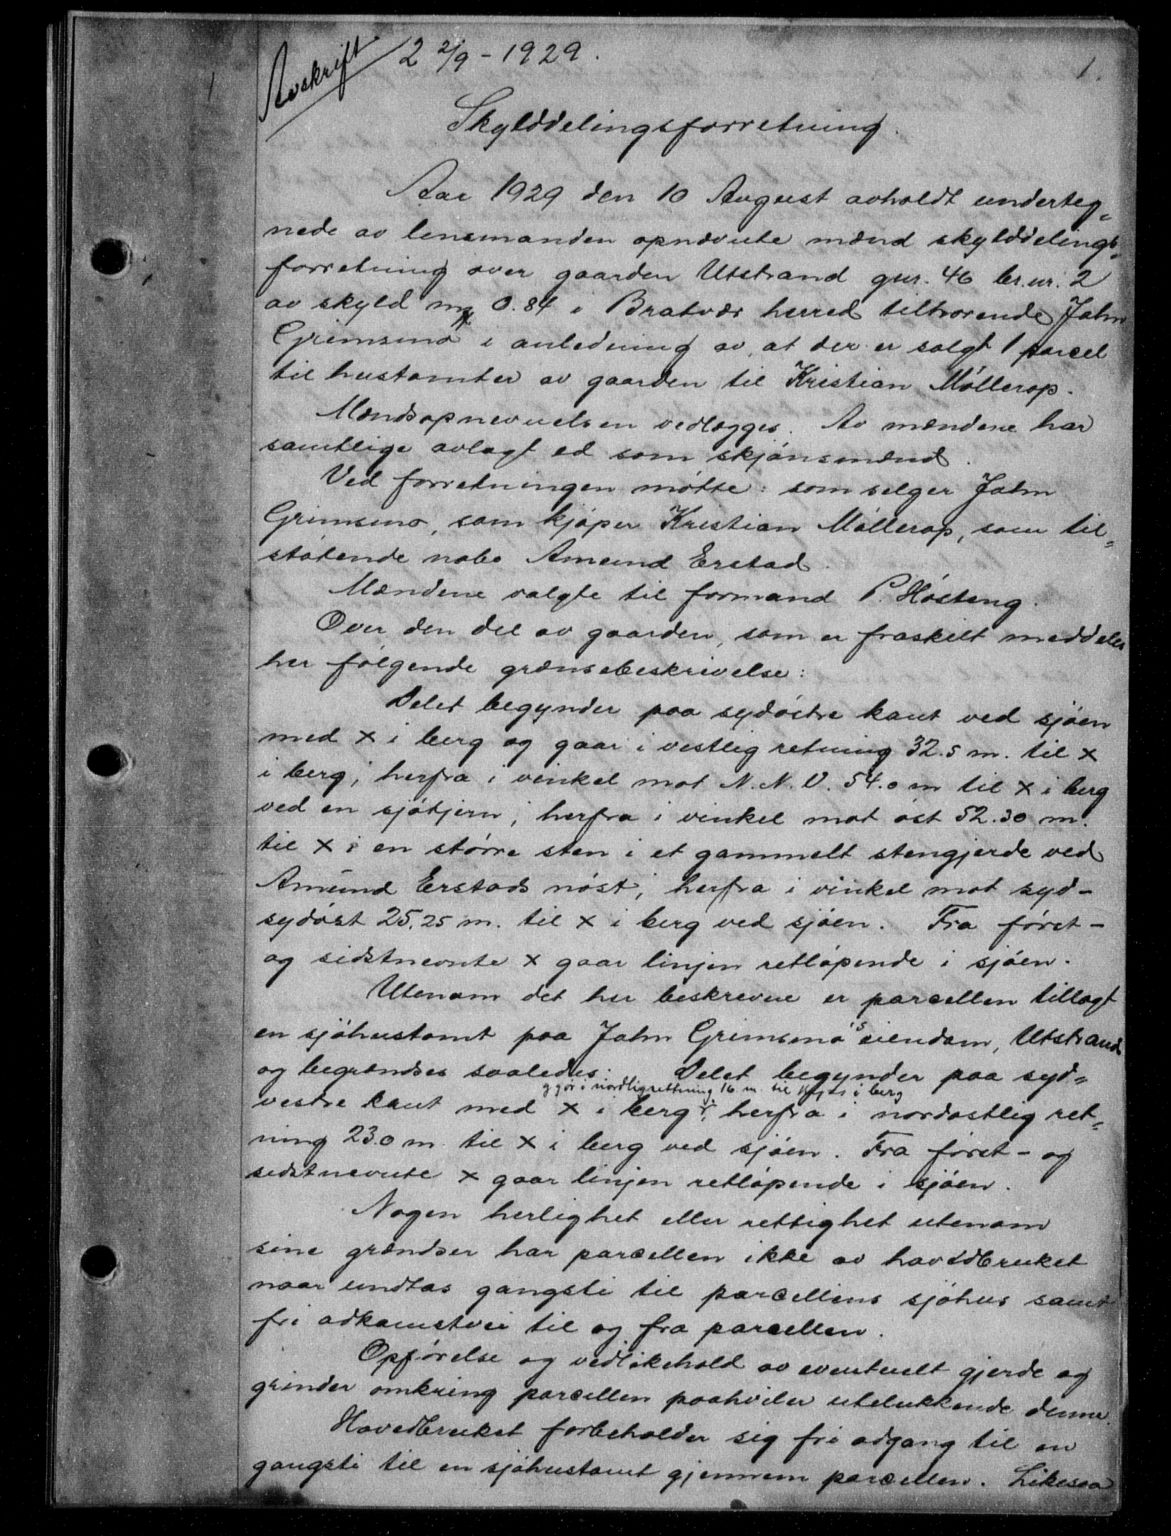 Avskrift 2 2/9 - 1929. 1.
Skylddelingsforretning.
Aar 1929 den 10 August avholdt underteg=
nede av lensmanden opnævnte mænd skylddelings=
forretning over gaarden Utstrand gnr. 46 br.nr. 2
av skyld mk 0.84 i Bratvær herred tilhørende John
Grimsmo i anledning av, at der er solgt 1 parcel
til hustomter av gaarden til Kristian Møllerop.
Mændsopnevnelsen vedlægges. Av mændene har
samtlige avlagt ed som skjønsmænd.
Ved forretningen møtte: som selger John
Grimsmo, som kjøper Kristian Møllerop, som til=
støtende nabo Amund Erstad.
Mændene valgte til formand P. Høsteng.
Over den del av gaarden, som er fraskilt meddeles
her følgende grænsebeskrivelse:
Delet begynder paa sydøstre kant ved sjøen
med x i berg og gaar i vestlig retning 32.5 m. til x
i berg; herfra i vinkel mot N.N.V. 54.0 m til x i berg
ved en sjøtjern; herfra i vinkel mot øst 52.30 m.
til x i en større sten i et gammelt stengjerde ved
Amund Erstads nøst; herfra i vinkel mot syd-
sydøst 25.25 m. til x i berg ved sjøen. Fra først-
og sidstnevnte x gaar linjen retløpende i sjøen.
Utenom det her beskrevne er parcellen tillagt
en sjøhustomt paa John Grimsmo's eiendom, Utstrand
og begrændses saaledes: Delet begynder paa syd=
og gør i nordlig rettning 16 m. til kryds i berg
vestre kant med x i berg; herfra i nordøstlig ret=
ning 23.0 m til x i berg ved sjøen. Fra først- og
sidstnevnte x gaar linjen retløpende i sjøen.
Nogen herlighet eller rettighet utenom
sine grændser har parcellen ikke av hovedbruket
naar undtas gangsti til parcellens sjøhus samt
fri adkomstvei til og fra parcellen.
Opførelse og vedlikehold av eventuelt gjerde og
grinder omkring parcellen paahviler utelukkende denne.
Hovedbruket forbeholder sig fri adgang til en
gangsti til en sjøhustomt gjennem parcellen. Likesaa